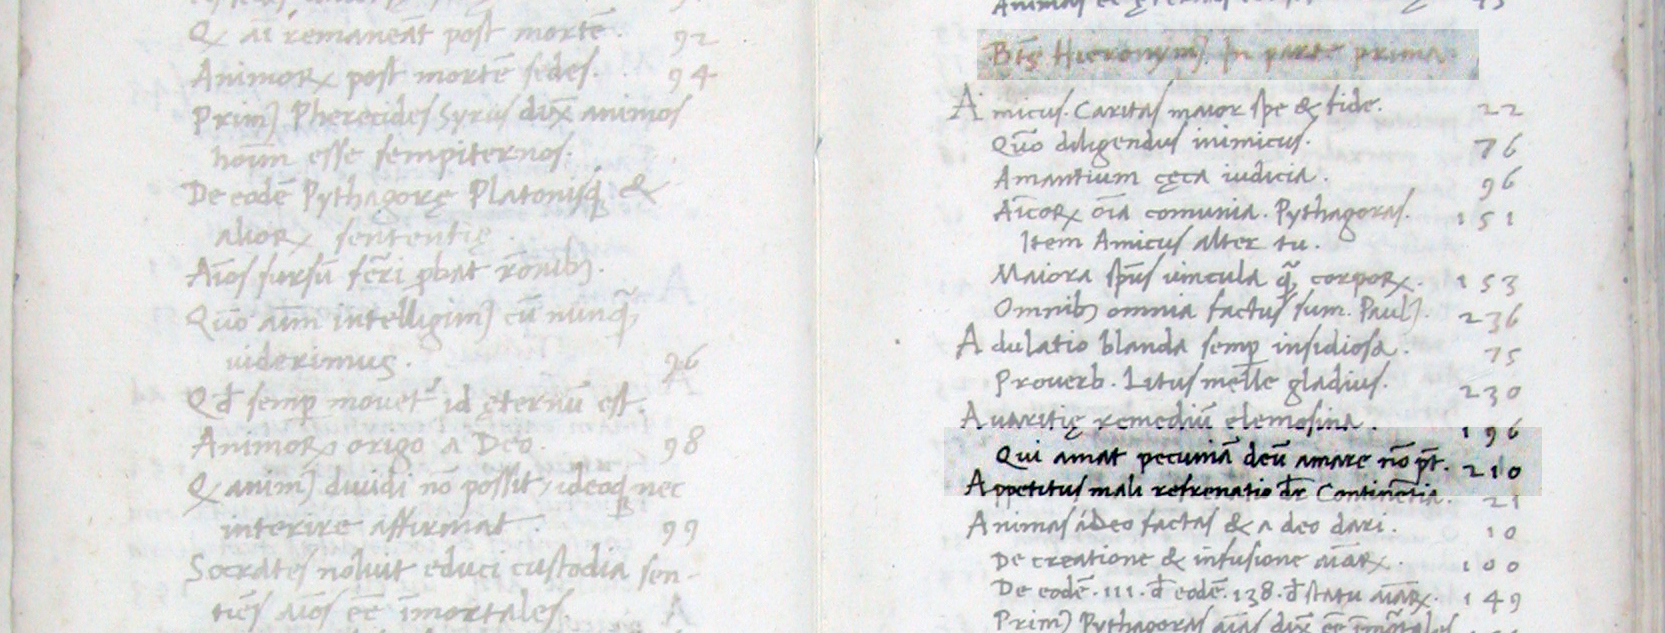 Q̃ aīi remaneāt post mortē. 92
Animoꝝ post mortē sedes. 94
Primꝰ Pherecides Syrus dix̄ animos
hoīum esse sempiternos.
De eodē Pythagorę Platonisqꝫ &
alioꝝ sententię.
Aīos sursū ferri ꝓbat rōnibꝫ.
Quō aīm intelligimꝰ cū nunq̄ꝫ
viderimus. 96
Qđ semꝑ mouet᷑ id ęternū est.
Animoꝝ origo a Deo. 98
Q̃ animꝰ diuidi nō possit, ideoqꝫ nec
interire affirmat. 99
Socrates noluit educi custodia sen-
tiēs aīos eē īmortales.
Btūs Hieronymꝰ. In parte prima.
Amicus. Caritas maior spe & fide. 22
Quō diligendus inimicus. 76
Amantium cęca iudicia. 96
Aīcoꝝ oīa comunia. Pythagoras. 151
Item Amicus alter tu.
Maiora spūs uincula q̄ꝫ corpoꝝ. 153
Omnibꝫ omnia factus sum. Paulꝰ. 236
Adulatio blanda semꝑ insidiosa. 75
Prouerb. Litus melle gladius. 230
Auaritię remediū elemosina. 196
Qui amat pecuniā deū amare nō pt̄. 210
Appetitus mali refrenatio dr̄ Continētia. 21
Animas a Deo factas & a deo dari. 10
De creatione & infusione aīaꝝ. 100
De eodē. 111. đ eodē. 138. đ statu aīaꝝ. 149
Primꝰ Pythagoras aīas dix̄ eē īmortales